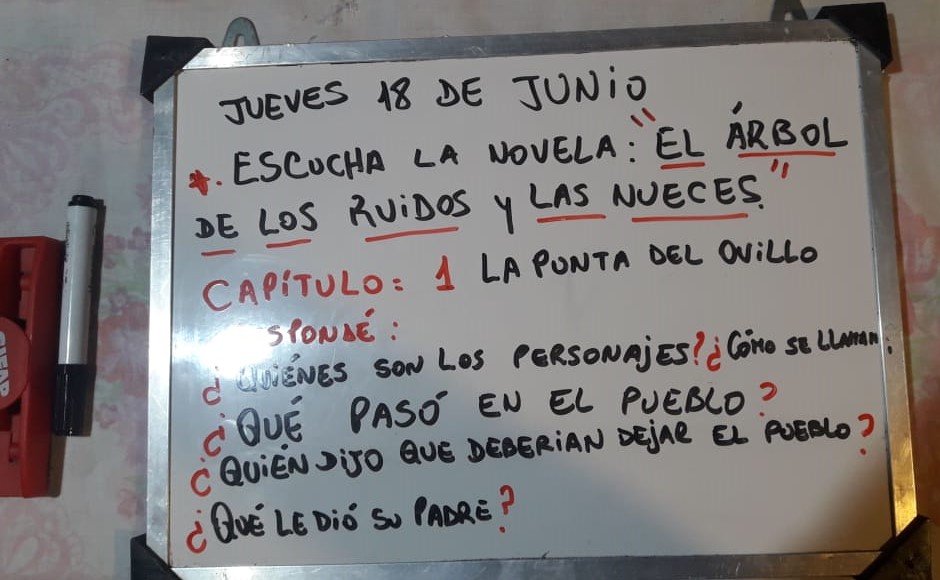 JUEVES 18 DE JUNIO
*. ESCUCHA LA NOVELA: "EL ÁRBOL
DE LOS RUIDOS Y LAS NUECES."
CAPÍTULO: 1 LA PUNTA DEL OVILLO
SPONDÉ:
¿QUIÉNES SON LOS PERSONAJES? ¿CÓMO SE LLAMAN:
¿QUÉ PASÓ EN EL PUEBLO?
¿QUIÉN DIJO QUE DEBERIAN DEJAR EL PUEBLO?
¿QUÉ LE DIÓ SU PADRE?